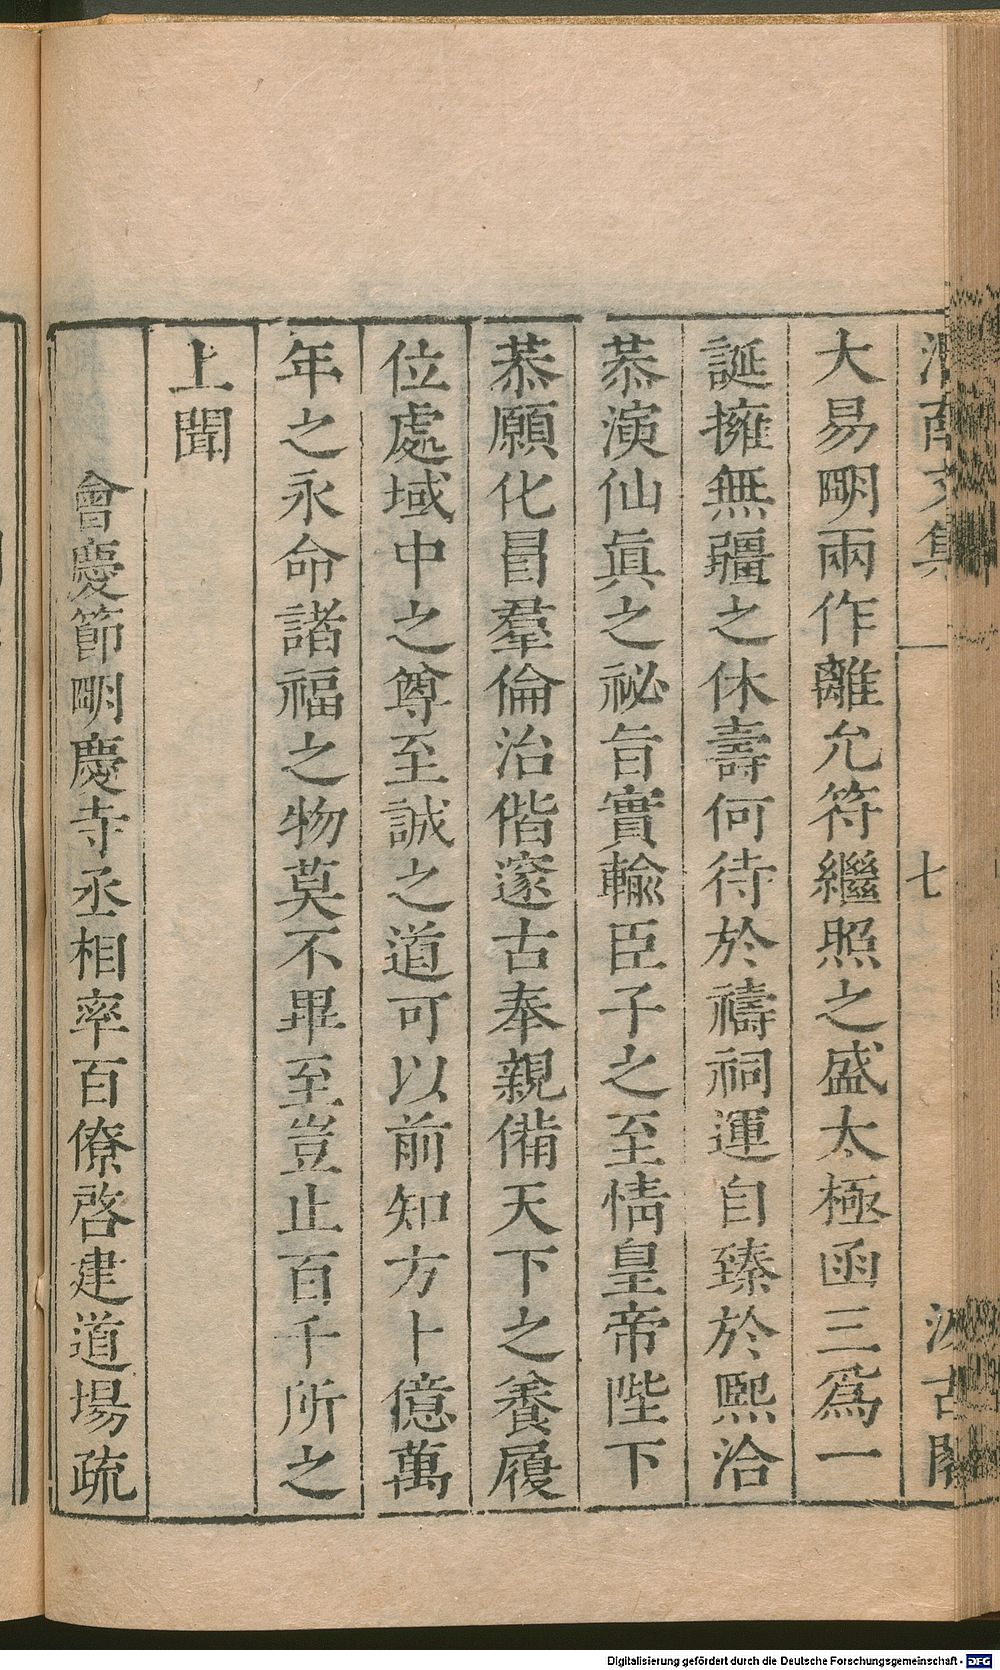 文集
七
古閣
大易明兩作離允符繼照之盛太極函三爲一
誕擁無疆之休壽何待於禱祠運自臻於熙洽
恭演仙眞之祕旨實輸臣子之至情皇帝陛下
恭願化冒羣倫治偕邃古奉親備天下之養履
位處域中之尊至誠之道可以前知方卜億萬
年之永命諸福之物莫不畢至豈止百千所之
上聞
會慶節明慶寺丞相率百僚啓建道場疏
Digitalisierung gefördert durch die Deutsche Forschungsgemeinschaft - DFG